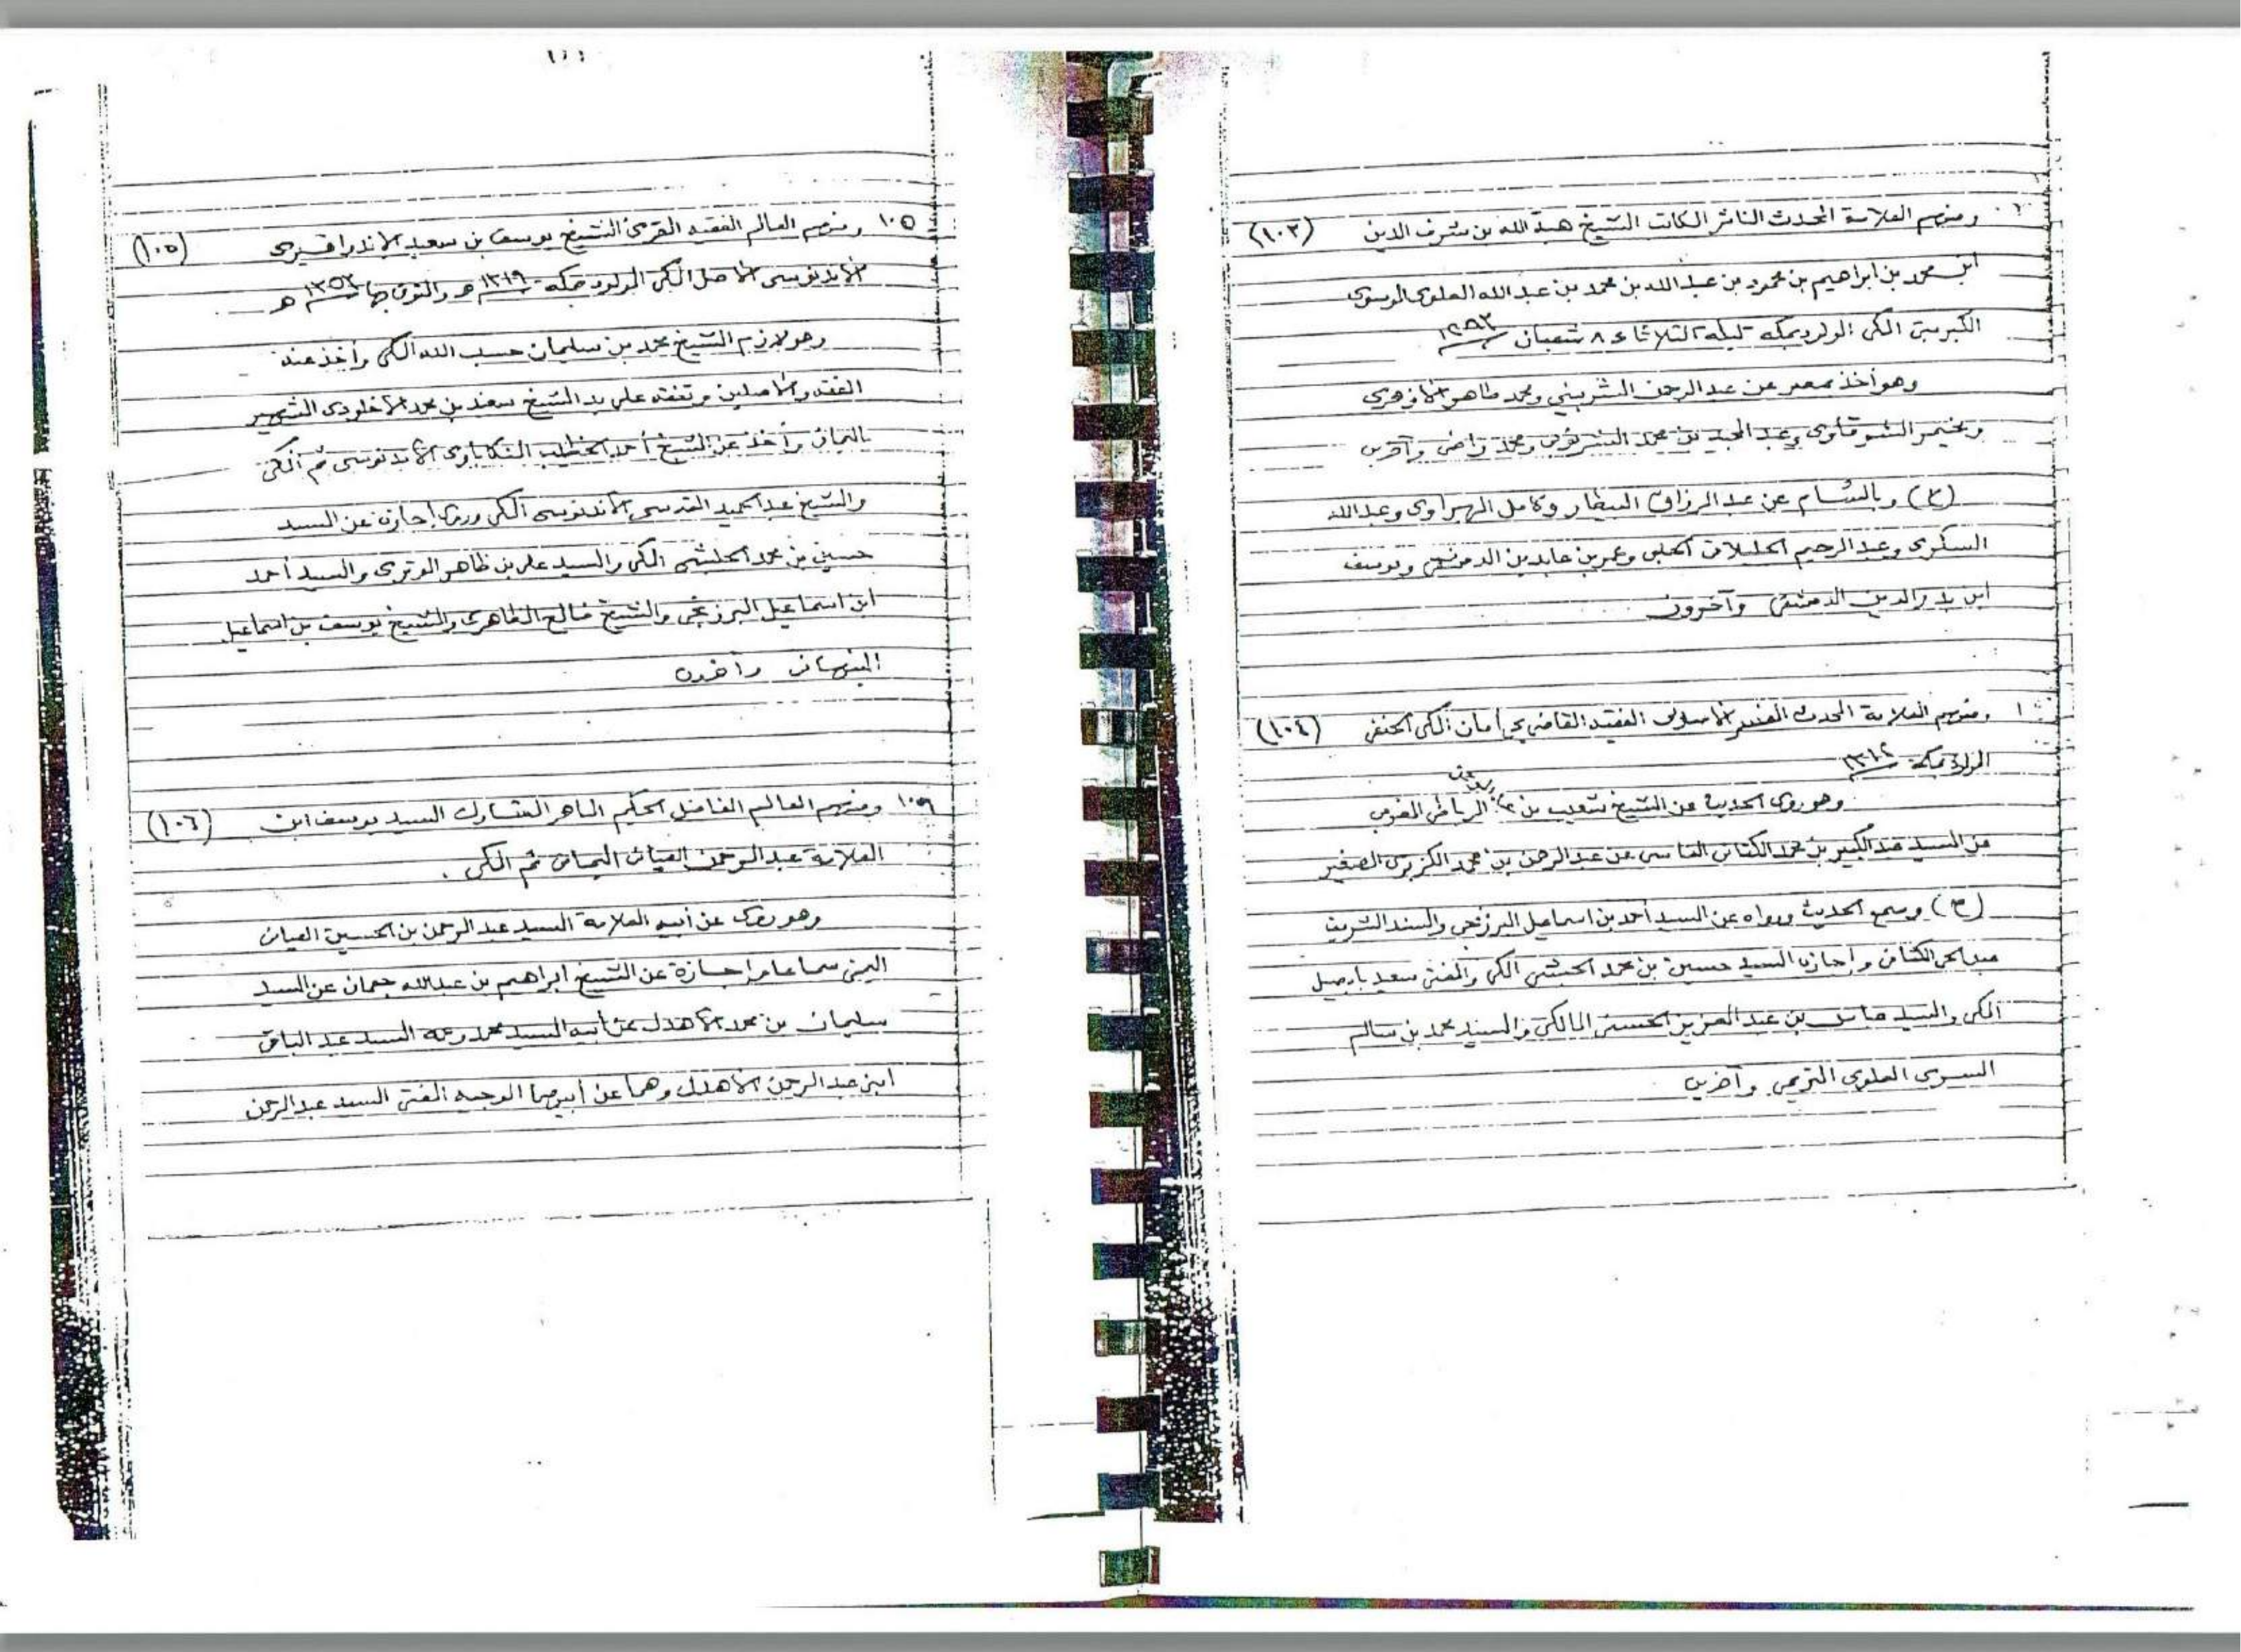 ومنهم العلامة المحدث الناثر الكاتب الشيخ هبة الله بن شرف الدين (١٠٣)
ابن محمد بن ابراهيم بن محمود بن عبد الله بن محمد بن عبد الله العلوى الموسوى
المكى المولود بمكة ليلة الثلاثاء ٨ شعبان
وهو أخذ بمصر عن عبد الرحمن الشربيني ومحمد طاهر
ومحمد راضى وآخرين
(ح) وبالشام عن عبد الرزاق البيطار وكامل الهبراوى وعبد الله
السكرى وعبد الرحيم الحلبى وعمر بن عابدين الدمشقى ويوسف
ابن بدر الدين الدمشقى وآخرون
ومنهم العلامة المحدث المفسر الاصولى الفقيه القاضى يحي أمان المكى الحنفى (١٠٤)
المولود بمكة ١٣١٢
وهو روى الحديث عن الشيخ شعيب بن الرباطى المغربى
عن السيد عبد الكبير بن محمد الكتانى الفاسى عن عبد الرحمن بن محمد الكزبرى الصغير
(ح) وسمع الحديث ورواه عن السيد أحمد بن اسماعيل البرزنجى والسيد الشريف
عبد الحى الكتانى وإجازة السيد حسين بن محمد الحبشى المكى والمفتى سعيد بابصيل
المكى والسيد عباس بن عبد العزيز الحسنى المالكى والسيد محمد بن سالم
السرى العلوى التريمى وآخرين
١٠٥ ومنهم العالم الفقيه المقرئ الشيخ يوسف بن سعيد (١٠٥)
الأندنوسى الأصل المكى المولود بمكة ه والمتوفى بها ١٣٥٢ ه
وهو لازم الشيخ محمد بن سليمان حسب الله المكى وأخذ عنه
الفقه والأصلين وتفقه على يد الشيخ بن محمد الشهير
باليمانى وأخذ عن الشيخ أحمد الخطيب المنكابوى الأندنوسى ثم المكى
والشيخ عبد الحميد القدسى الأندنوسى المكى وروى إجازة عن السيد
حسين بن محمد الحبشى المكى والسيد على بن ظاهر الوترى والسيد أحمد
ابن اسماعيل البرزنجى والشيخ فالح الظاهرى والشيخ يوسف بن اسماعيل
النبهانى وآخرون
١٠٦ ومنهم العالم الفاضل الحكيم الماهر المشارك السيد يوسف ابن (١٠٦)
العلامة عبد الرحمن اليمانى ثم المكى .
وهو روى عن أبيه العلامة السيد عبد الرحمن بن الحسين
اليمنى سماعا وإجازة عن الشيخ ابراهيم بن عبد الله جمعان عن السيد
سليمان بن محمد الأهدل عن أبيه السيد محمد وعمه السيد عبد الباقى
ابنى عبد الرحمن الأهدل وهما عن أبيهما الوجيه المفتى السيد عبد الرحمن